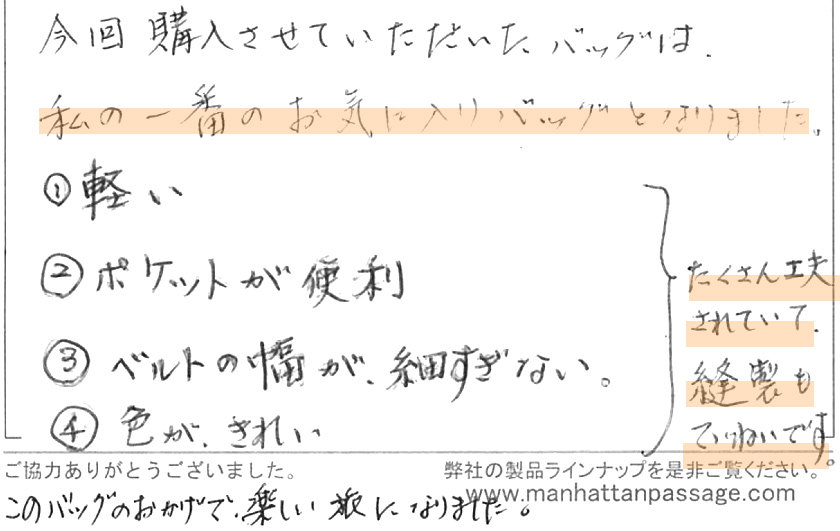 今回購入させていただいたバッグは、
私の一番のお気に入りバッグとなりました。
①軽い
②ポケットが便利
③ベルトの幅が、細すぎない。
④色が、きれい
たくさん工夫
されていて、
縫製も
ていねいです。
ご協力ありがとうございました。
弊社の製品ラインナップを是非ご覧ください。
www.manhattanpassage.com
このバッグのおかげで、楽しい旅になりました。